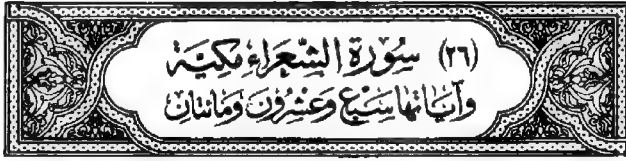 (٢٦) سُورَةُ الشُّعَرَاءِ مَكِّيَّة
وَآيَاتُهَا سَبْعٌ وَعِشْرُونَ وَمَائَتَانِ